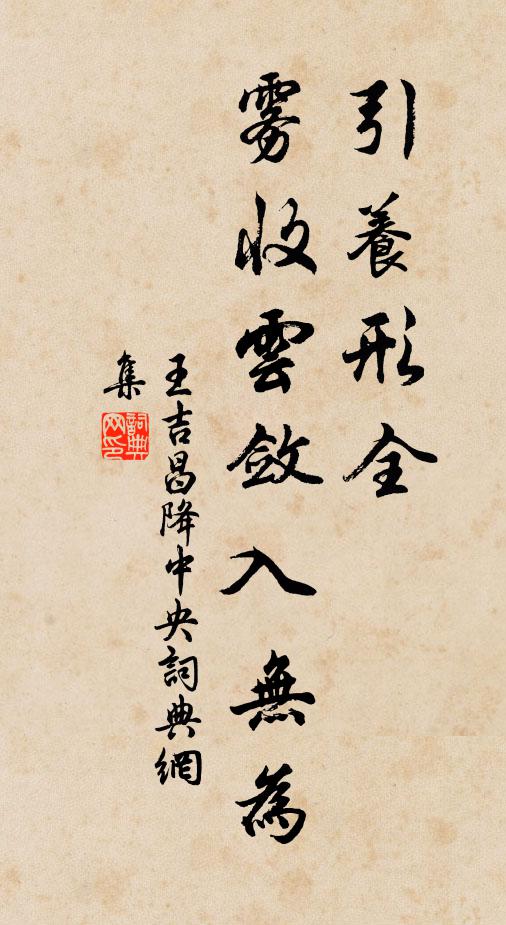 引養形全
雾收雲斂入無為
王吉昌降中央詞典網
集
詞典
网印